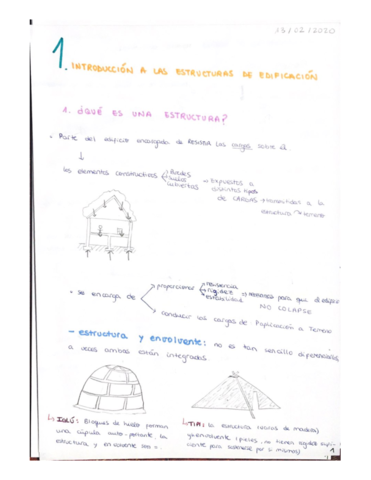 13/02/2020
1. INTRODUCCIÓN A LAS ESTRUCTURAS DE EDIFICACIÓN
1. ¿QUÉ ES UNA ESTRUCTURA?
• Parte del edificio encargada de RESISTIR las cargas sobre él
↓
los elementos constructivos
cubiertas
→ Expuestos a
distintos tipos
de CARGAS → transmitidas a la
estructura → terreno
• Se encarga de
proporcionar
resistencia
rigidez
estabilidad
para que el edificio
NO COLAPSE
conducir las cargas de
a Terreno
- estructura y envolvente: no es tan sencillo
a veces ambas están integradas
↳ IGLÚ: Bloques de hielo forman
una cúpula auto-portante, la
estructura y envolvente son =.
↳ TIPI: la estructura (palos de madera)
y envolvente (pieles, no tienen rigidez sufi-
ciente para sostenerse por sí mismas)
1